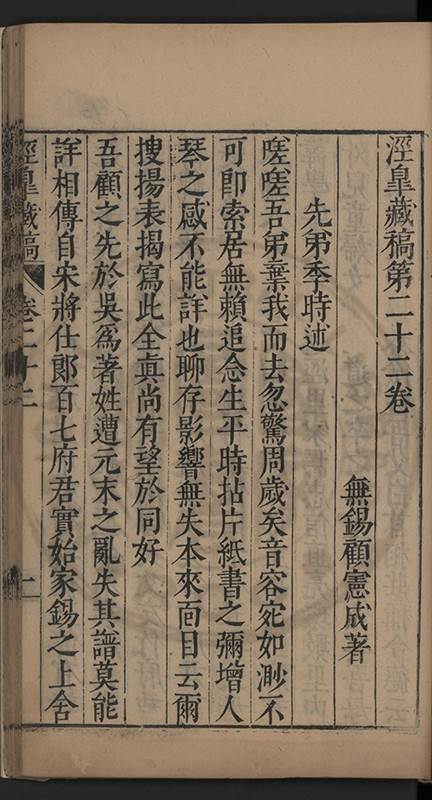 涇臯藏稿第二十二卷
無錫顧憲成著
先弟季時述
嗟嗟吾弟棄我而去忽驚周歲矣音容宛如渺不
可卽索居無賴追念生平時拈片紙書之彌增人
琴之感不能詳也聊存影響無失本來面目云爾
搜揚表揭寫此全真尚有望於同好
吾顧之先於吳爲著姓遭元末之亂失其譜莫能
詳相傳自宋將仕郎百七府君實始家錫之上舍
涇臯藏稿 卷二十二 一